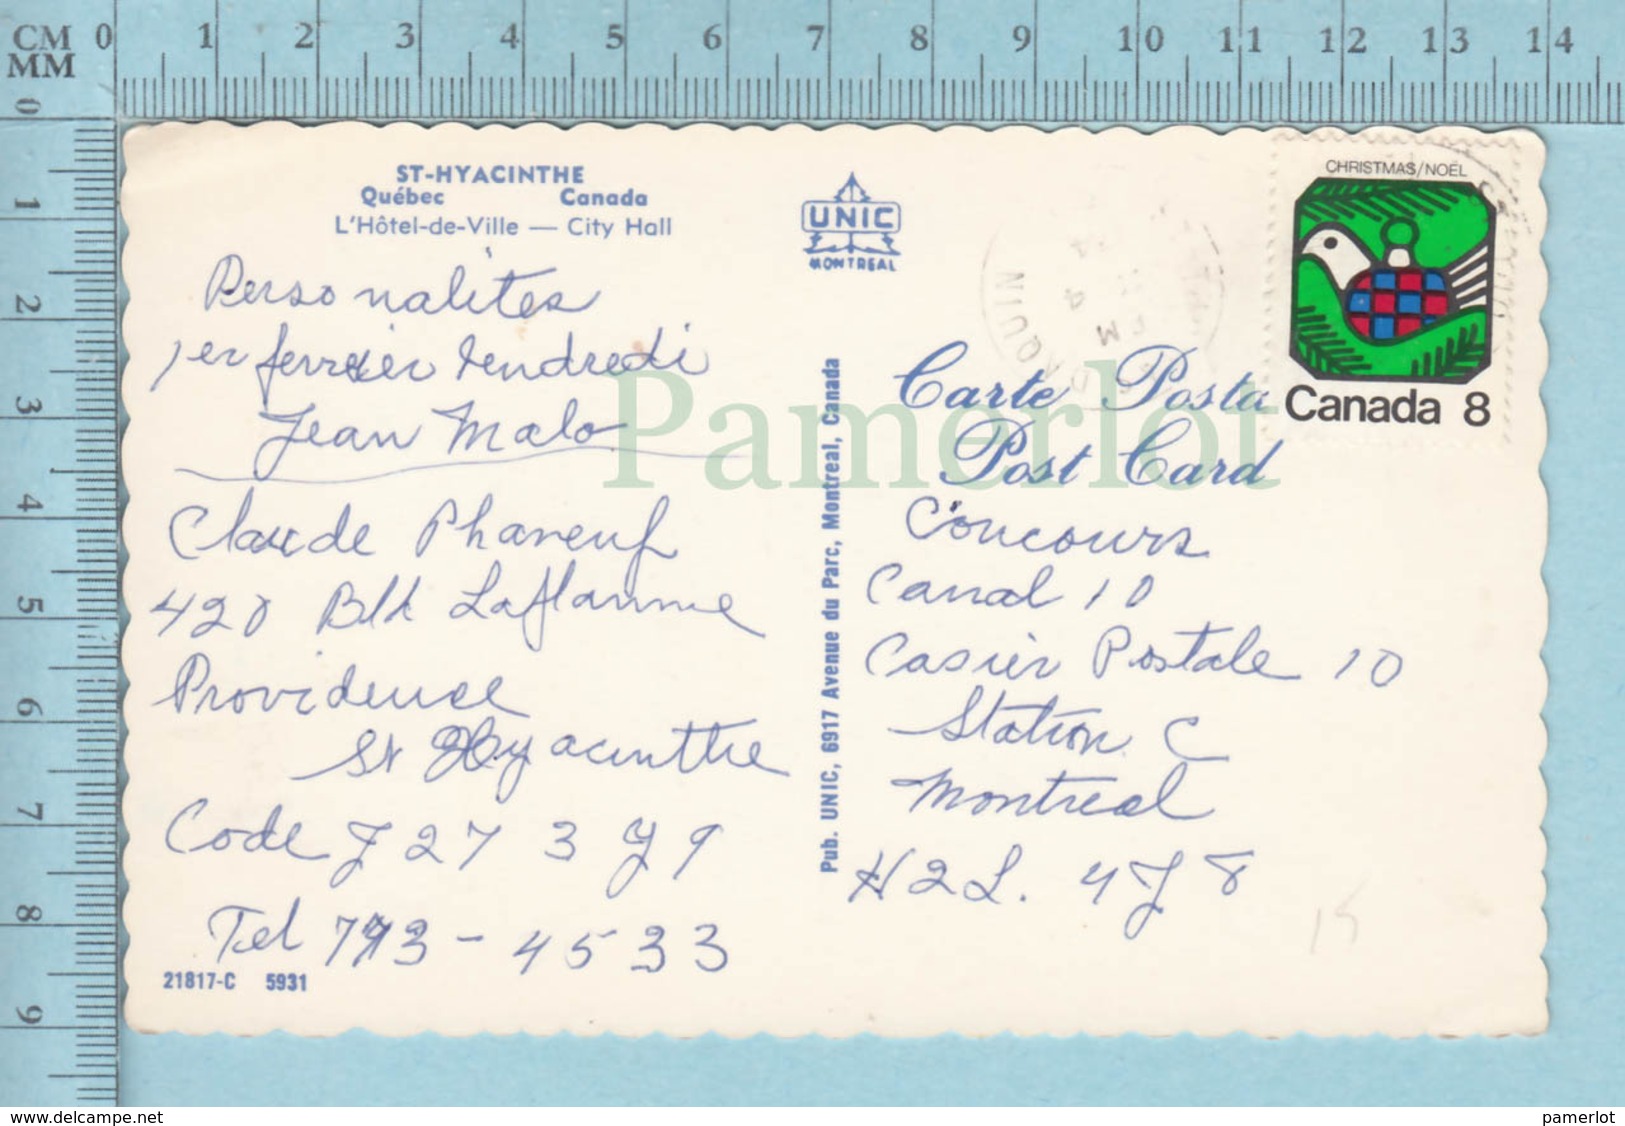 CM 0 1 2 3 4 5 6 7 8 9 10 11 12 13 14
MM
0 1 2 3 4 5 6 7 8 9
ST-HYACINTHE
Québec Canada
L'Hôtel-de-Ville — City Hall
UNIC
MONTREAL
CHRISTMAS/NOËL
Canada 8
Personalites
1er fevrier Vendredi
Jean Malo
Claude Phaneuf
420 Bld Laflamme
Providence
St Hyacinthe
Code J 2 7 3 Y 9
Tel 773-4533
21817-C 5931
Pub. UNIC, 6917 Avenue du Parc, Montreal, Canada
Carte Posta
Post Card
Pamerlot
PM
4
Concours
Canal 10
Casier Postale 10
Station C
Montreal
H2L. 4J8
15
www.delcampe.net
pamerlot